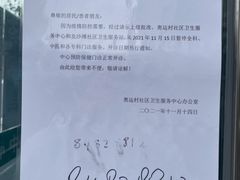 尊敬的居民/患者朋友:
因为疫情防控需要,经过请示上级批准,奥运村社区卫生服
务中心和北沙滩社区卫生服务站,从2021年11月15日暂停全科、
中医和各专科门诊服务,开诊日期另行通知。
中心预防保健门诊正常开诊。
由此给您带来不便,敬请谅解!
奥运村社区卫生服务中心办公室
二〇二一年十一月十四日